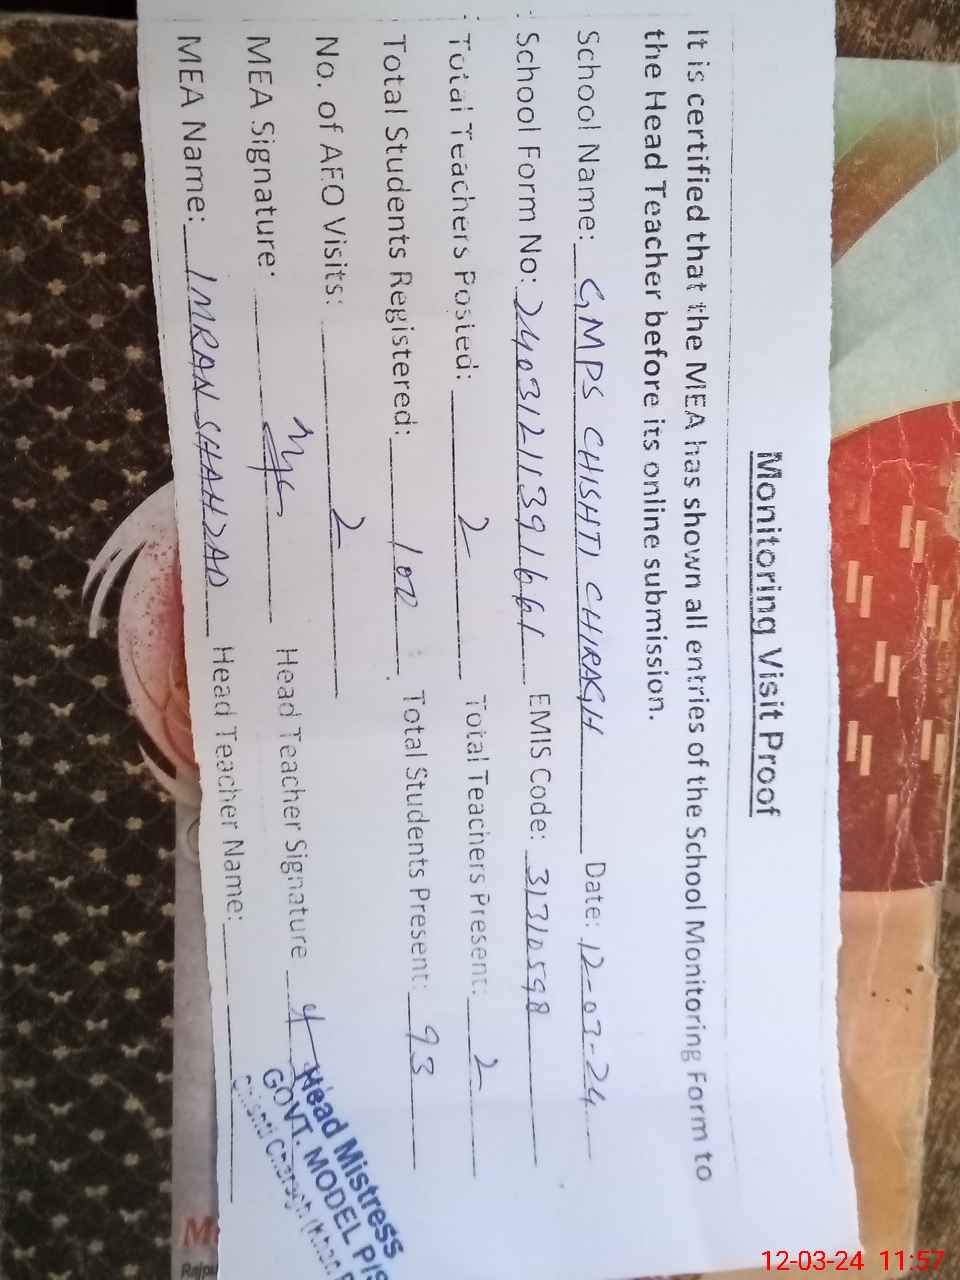 Monitoring Visit Proof
It is certified that the MEA has shown all entries of the School Monitoring Form to
the Head Teacher before its online submission.
School Name: GMPS CHISHTI CHIRAGH Date: 12-03-24
School Form No: 24031211391661 EMIS Code: 31310598
Total Teachers Posted: 2 Total Teachers Present: 2
Total Students Registered: 100 Total Students Present: 93
No. of AEO Visits: 2
MEA Signature: Head Teacher Signature
MEA Name: IMRAN SHAHZAD Head Teacher Name:
Head Mistress
GOVT. MODEL P/S
Chishti Charagh
12-03-24 11:57